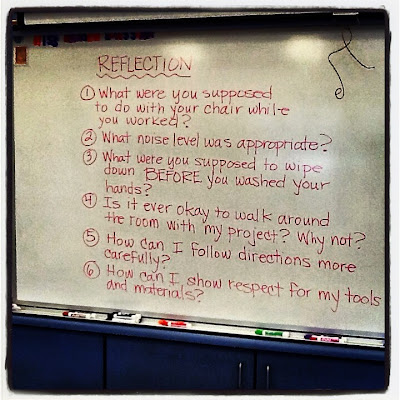 REFLECTION
① What were you supposed
to do with your chair while
you worked?
② What noise level was appropriate?
③ What were you supposed to wipe
down BEFORE you washed your
hands?
④ Is it ever okay to walk around
the room with my project? Why not?
⑤ How can I follow directions more
carefully?
⑥ How can I show respect for my tools
and materials?